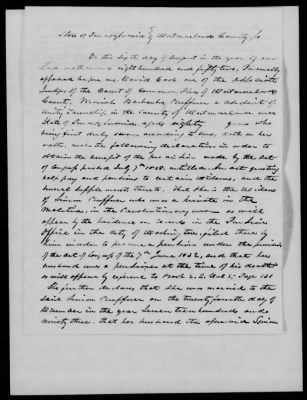 State of Pennsylvania } Westmoreland County ss
On this sixth day of August in the year of our
Lord one thousand eight hundred and fifty two, Personally
appeared before me David Cook one of the Associate
Judges of the Court of Common Pleas of Westmoreland
County, Barbara Ruffner a resident of
Unity Township in the County of Westmoreland and
State of Pennsylvania aged eighty years who
being first duly sworn according to law, doth on her
oath, make the following declaration in order to
obtain the benefit of the provision made by the Act
of Congress passed July 7th 1838, entitled An Act granting
half pay and pensions to certain widows, and the
several supplements thereto. That she is the Widow
of Simon Ruffner who was a private in the
Militia, in the Revolutionary war as will
appear by the evidence on hand in the Pension
Office in the City of Washington, filed there by
him in order to procure a pension under the provision
of the Act of Congress of the 7th June 1832, and that her
husband was a pensioner at the time of his death
as will appear by reference to Book
She further declares that she was married to the
said Simon Ruffner on the twenty fourth day of
December in the year Seventeen hundred and
ninety three. that her husband the aforesaid Simon